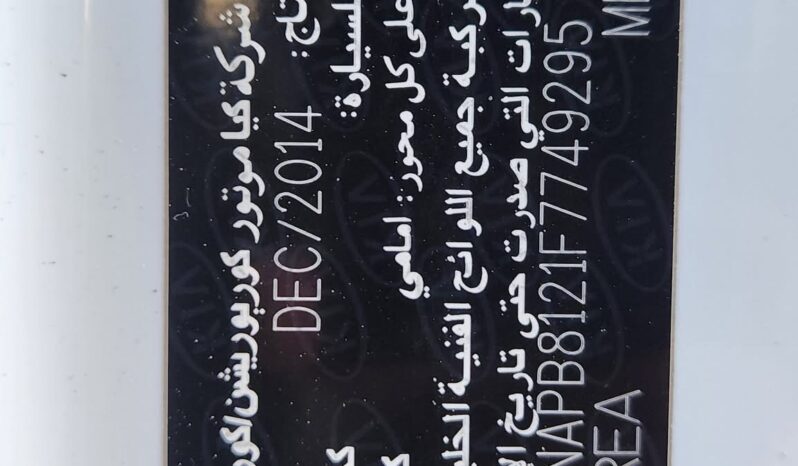 شركة كيا موتور كوربوريشن
تاج:
DEC/2014
لسيارة:
على كل محور: امامي
ركبة جميع اللوائح الفنية الخل
ارات التي صدرت حتى تاريخ
NAPB8121F7749295
REA